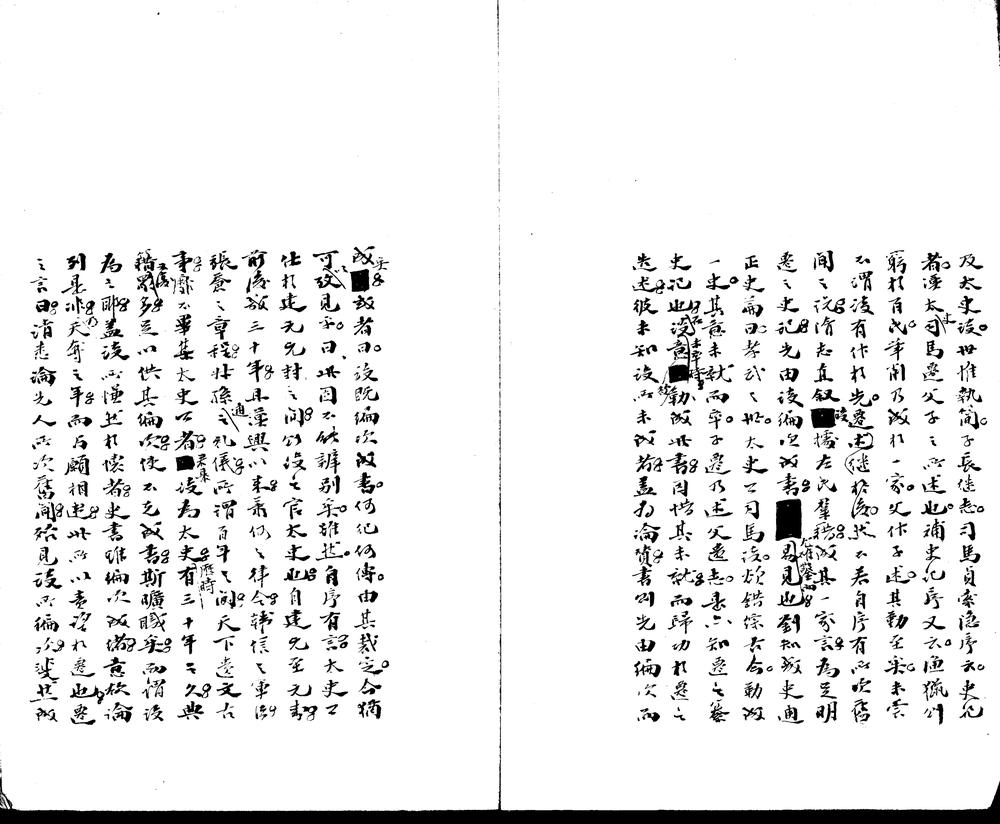 及太史談世惟執簡子長継志司馬貞索隐序云史記
者漢太史司馬遷父子之所述也補史記序又云漁獵則
窮於百氏筆削乃成於一家父作子述其勤至矣未嘗
不謂談有作於先遷述継於後然不若自序有所次舊
聞之說隋志直叙談據左氏羣籍成其一家言為足明
遷之史記先由談編次成書尤確鑿易見也劉知幾史通
正史篇曰孝武之世太史公司馬談欲錯綜古今勤成
一史其意未就而卒子遷乃述父遺志是亦知遷之纂
史記也談在未卒時意勒成此書因惜其未就而歸功於遷之
述彼未知談所未成者盖為論賛書則先由編次而
成矣或者曰談既編次成書何紀何傳由其裁定今猶
可攷見乎曰此固不能辨别矣雖然自序有言太史公
仕於建元元封之間公談之官太史也自建元至元封
前後数三十年且漢興以来蕭何之律令韓信之軍法
張蒼之章程叔孫通之礼儀所謂百年之間天下遺文古
事靡不畢集太史公者談為太史歷時有三十年之久典
籍又多足以供其編次使不克成書斯曠職矣而謂談
為之耶盖談所慬然於懷者史書雖編次成緒意欲論
列是非天乃奪之年而与願相違此所以責望於遷也遷
之言曰請悉論先人所次舊聞殆見談所編次斐然成